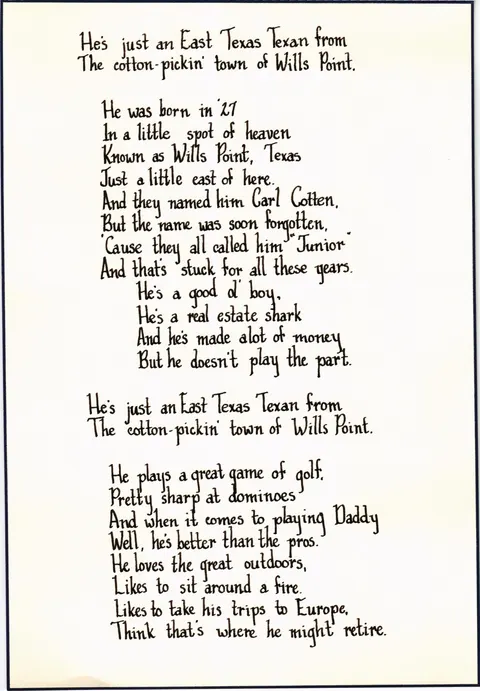 He's just an East Texas Texan from
The cotton-pickin' town of Wills Point.
He was born in '27
In a little spot of heaven
Known as Wills Point, Texas
Just a little east of here.
And they named him Carl Cotten,
But the name was soon forgotten,
'Cause they all called him "Junior"
And that's stuck for all these years.
He's a good ol' boy,
He's a real estate shark
And he's made alot of money
But he doesn't play the part.
He's just an East Texas Texan from
The cotton-pickin' town of Wills Point.
He plays a great game of golf,
Pretty sharp at dominoes
And when it comes to playing Daddy
Well, he's better than the pros.
He loves the great outdoors,
Likes to sit around a fire.
Likes to take his trips to Europe,
Think that's where he might retire.